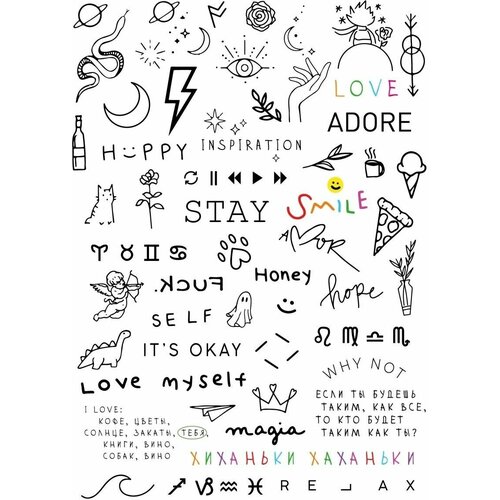 LOVE
ADORE
H☺PPY
INSPIRATION
STAY
SMILE
AMOR
FUCK.
Honey
hope
SELF
IT'S OKAY
WHY NOT
Love myself
I LOVE:
КОФЕ, ЦВЕТЫ,
СОЛНЦЕ, ЗАКАТЫ, ТЕБЯ,
КНИГИ, ВИНО,
СОБАК, ВИНО
magia
ЕСЛИ ТЫ БУДЕШЬ
ТАКИМ, КАК ВСЕ,
ТО КТО БУДЕТ
ТАКИМ КАК ТЫ?
ХИХАНЬКИ ХАХАНЬКИ
RELAX